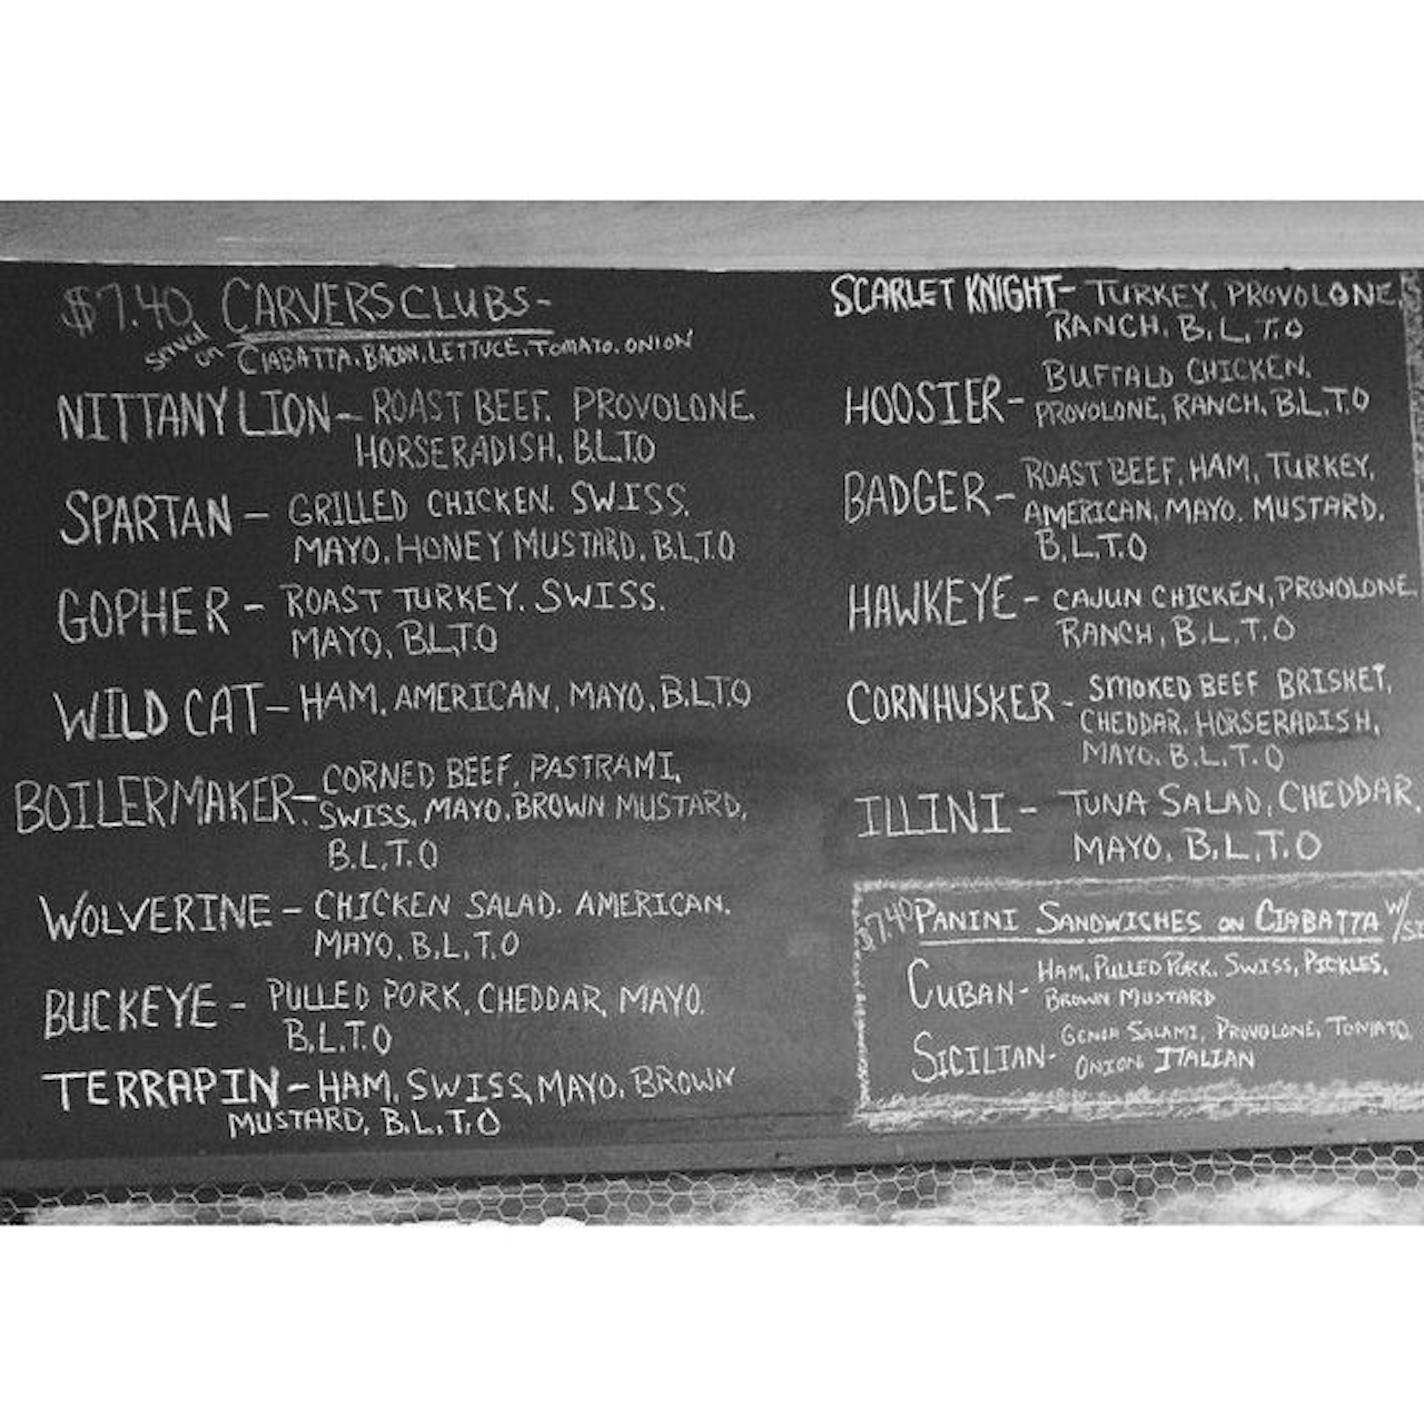 $7.40 CARVERS CLUBS-
Served on CIABATTA, BACON, LETTUCE, TOMATO, ONION
NITTANY LION - ROAST BEEF, PROVOLONE,
HORSERADISH, B.L.T.O
SPARTAN - GRILLED CHICKEN, SWISS,
MAYO, HONEY MUSTARD, B.L.T.O
GOPHER - ROAST TURKEY, SWISS,
MAYO, B.L.T.O
WILD CAT - HAM, AMERICAN, MAYO, B.L.T.O
BOILERMAKER - CORNED BEEF, PASTRAMI,
SWISS, MAYO, BROWN MUSTARD,
B.L.T.O
WOLVERINE - CHICKEN SALAD, AMERICAN,
MAYO, B.L.T.O
BUCKEYE - PULLED PORK, CHEDDAR, MAYO,
B.L.T.O
TERRAPIN - HAM, SWISS, MAYO, BROWN
MUSTARD, B.L.T.O
SCARLET KNIGHT - TURKEY, PROVOLONE,
RANCH, B.L.T.O
HOOSIER - BUFFALO CHICKEN,
PROVOLONE, RANCH, B.L.T.O
BADGER - ROAST BEEF, HAM, TURKEY,
AMERICAN, MAYO, MUSTARD,
B.L.T.O
HAWKEYE - CAJUN CHICKEN, PROVOLONE,
RANCH, B.L.T.O
CORNHUSKER - SMOKED BEEF BRISKET,
CHEDDAR, HORSERADISH,
MAYO, B.L.T.O
ILLINI - TUNA SALAD, CHEDDAR
MAYO, B.L.T.O
$7.40 PANINI SANDWICHES ON CIABATTA W/
CUBAN - HAM, PULLED PORK, SWISS, PICKLES,
BROWN MUSTARD
SICILIAN - GENOA SALAMI, PROVOLONE, TOMATO,
ONION ITALIAN